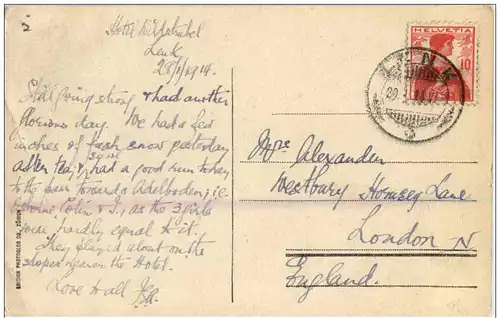 Hotel Wildstrubel
Lenk
28/1/1914.
Still going strong & had another
glorious day. We had a few
inches of fresh snow yesterday
after tea, & had a good run today
to the towards Adelboden; i.e.
Colin & I, as the 3 girls
were hardly equal to it.
They played about on the
slopes near the Hotel.
Love to all
HELVETIA
10
LENK
Mrs Alexander
Westbury Hornsey Lane
London N
England.
EDITION PHOTOGLOB CO., ZÜRICH